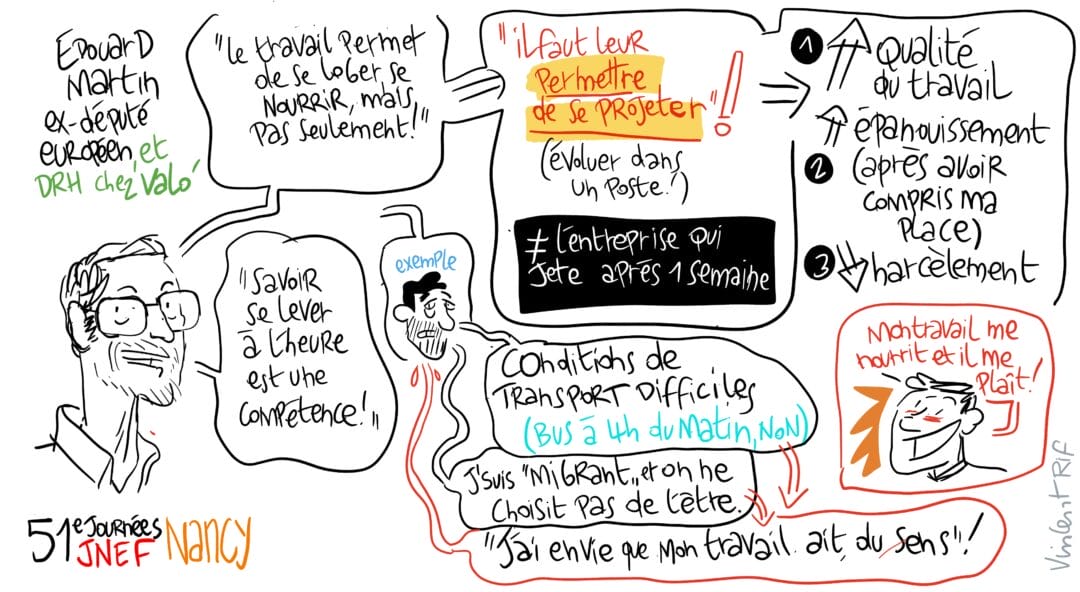 Edouard
Martin
ex-député
européen, et
DRH chez Való
"Le travail permet
de se loger, se
nourrir, mais
pas seulement!"
"il faut leur
permettre
de se projeter"!
(évoluer dans
un poste!)
≠ l'entreprise qui
jete après 1 semaine
1 ⇑ qualité
du travail
⇑ épanouissement
2 (après avoir
compris ma
place)
3 ⇓ harcèlement
"Savoir
se lever
à l'heure
est une
compétence!"
exemple
Conditions de
transport difficiles
(Bus à 4h du matin, non)
J'suis "migrant", et on ne
choisit pas de l'être.
"J'ai envie que mon travail ait du sens"!
Mon travail me
nourrit et il me
plaît!
51e Journées
JNEF Nancy
Vincent Rif